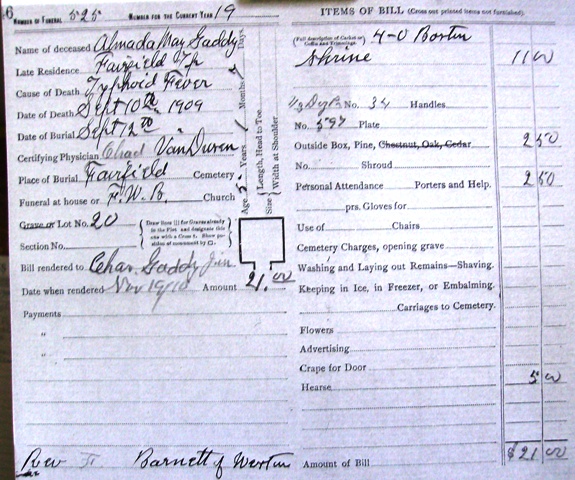 6
NUMBER OF FUNERAL 525 NUMBER FOR THE CURRENT YEAR 19
Name of deceased Almada May Gaddy
Late Residence Fairfield Tp
Cause of Death Typhoid Fever
Date of Death Sept 10th 1909
Date of Burial Sept 12th "
Certifying Physician Chad VanDuren
Place of Burial Fairfield Cemetery
Funeral at house or F.W.B. Church
Age 5 Years Months Days.
Size { Length, Head to Toe
Width at Shoulder
Grave or Lot No. 20
Section No.
Bill rendered to Char. Gaddy Jun
Date when rendered Nov 19/10 Amount 21.00
Payments
"
"
Rev Barnett of Weston
ITEMS OF BILL (Cross out printed items not furnished).
(Full description of Casket or Coffin and Trimmings) 4-0 Boston
Shrine 11 00
1/3 Dz No. 34 Handles
No. 597 Plate
Outside Box, Pine, Chestnut, Oak, Cedar 2 50
No. Shroud
Personal Attendance Porters and Help. 2 50
prs. Gloves for
Use of Chairs
Cemetery Charges, opening grave
Washing and Laying out Remains—Shaving.
Keeping in Ice, in Freezer, or Embalming.
Carriages to Cemetery.
Flowers
Advertising
Crape for Door
Hearse 5 00
Amount of Bill $21 00